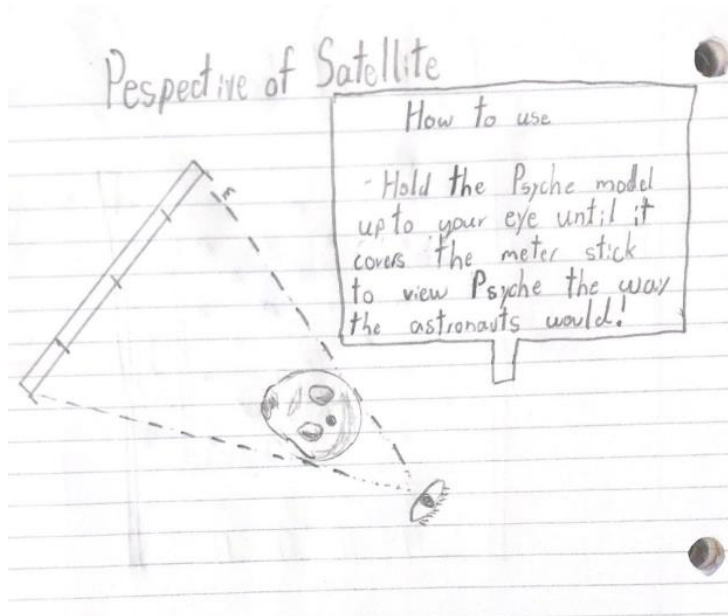 Pespective of Satellite
How to use
- Hold the Psyche model
up to your eye until it
covers the meter stick
to view Psyche the way
the astronauts would!